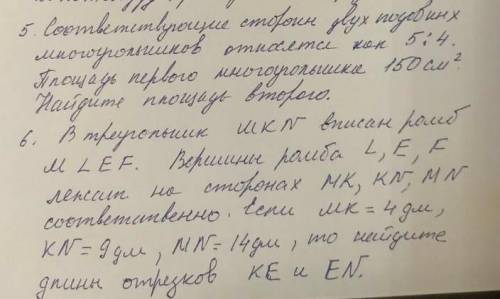 5. Соответствующие сторон двух подобных
многоугольников относятся как 5:4.
Площадь первого многоугольника 150 см².
Найдите площадь второго.
6. В треугольник MKN вписан ромб
MLEF. Вершины ромба L, E, F
лежат на сторонах MK, KN, MN
соответственно. Если MK = 4 дм,
KN = 9 дм, MN = 14 дм, то найдите
длины отрезков KE и EN.